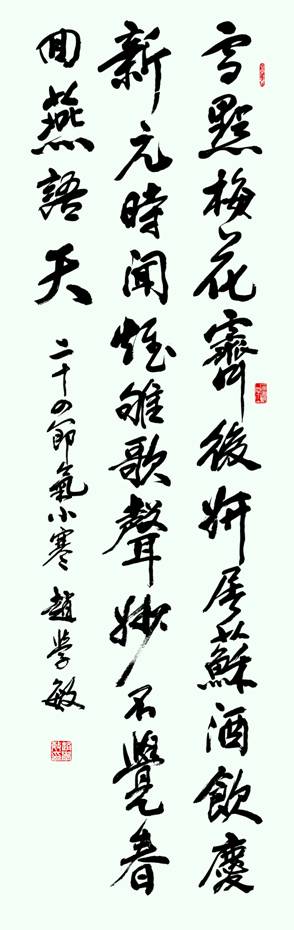 雪點梅花霽後妍屠蘇酒飲慶
新元時聞雉雊歌聲妙不覺春
回燕語天
二十四節氣小寒 趙學敏